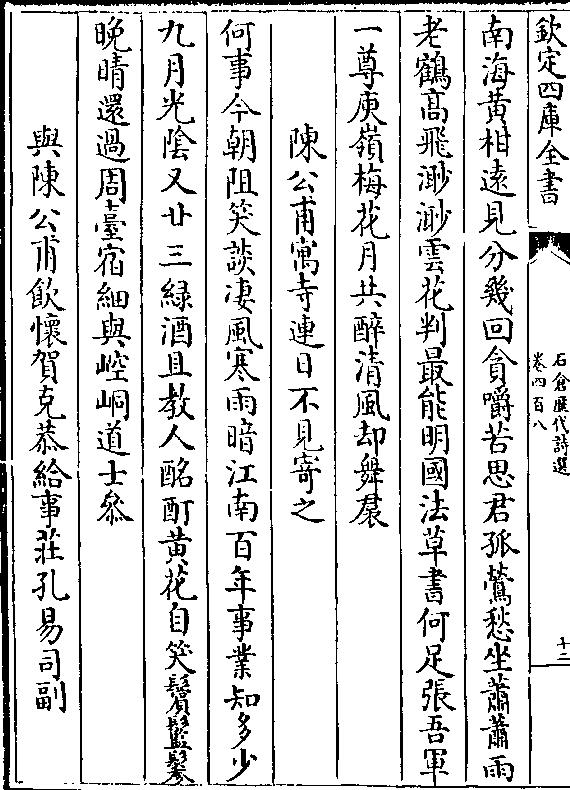 欽定四庫全書
石倉歷代詩選
卷四百八
十二
南海黃柑遠見分幾回貪嚼苦思君孤鶯愁坐蕭蕭雨
老鶴高飛渺渺雲花判最能明國法草書何足張吾軍
一尊庾嶺梅花月共醉清風却舞裙
陳公甫寓寺連日不見寄之
何事今朝阻笑談凄風寒雨暗江南百年事業知多少
九月光陰又廿三綠酒且教人酩酊黃花自笑鬢鬖
晚晴還過周臺宿細與崆峒道士叅
與陳公甫飲懷賀克恭給事莊孔易司副